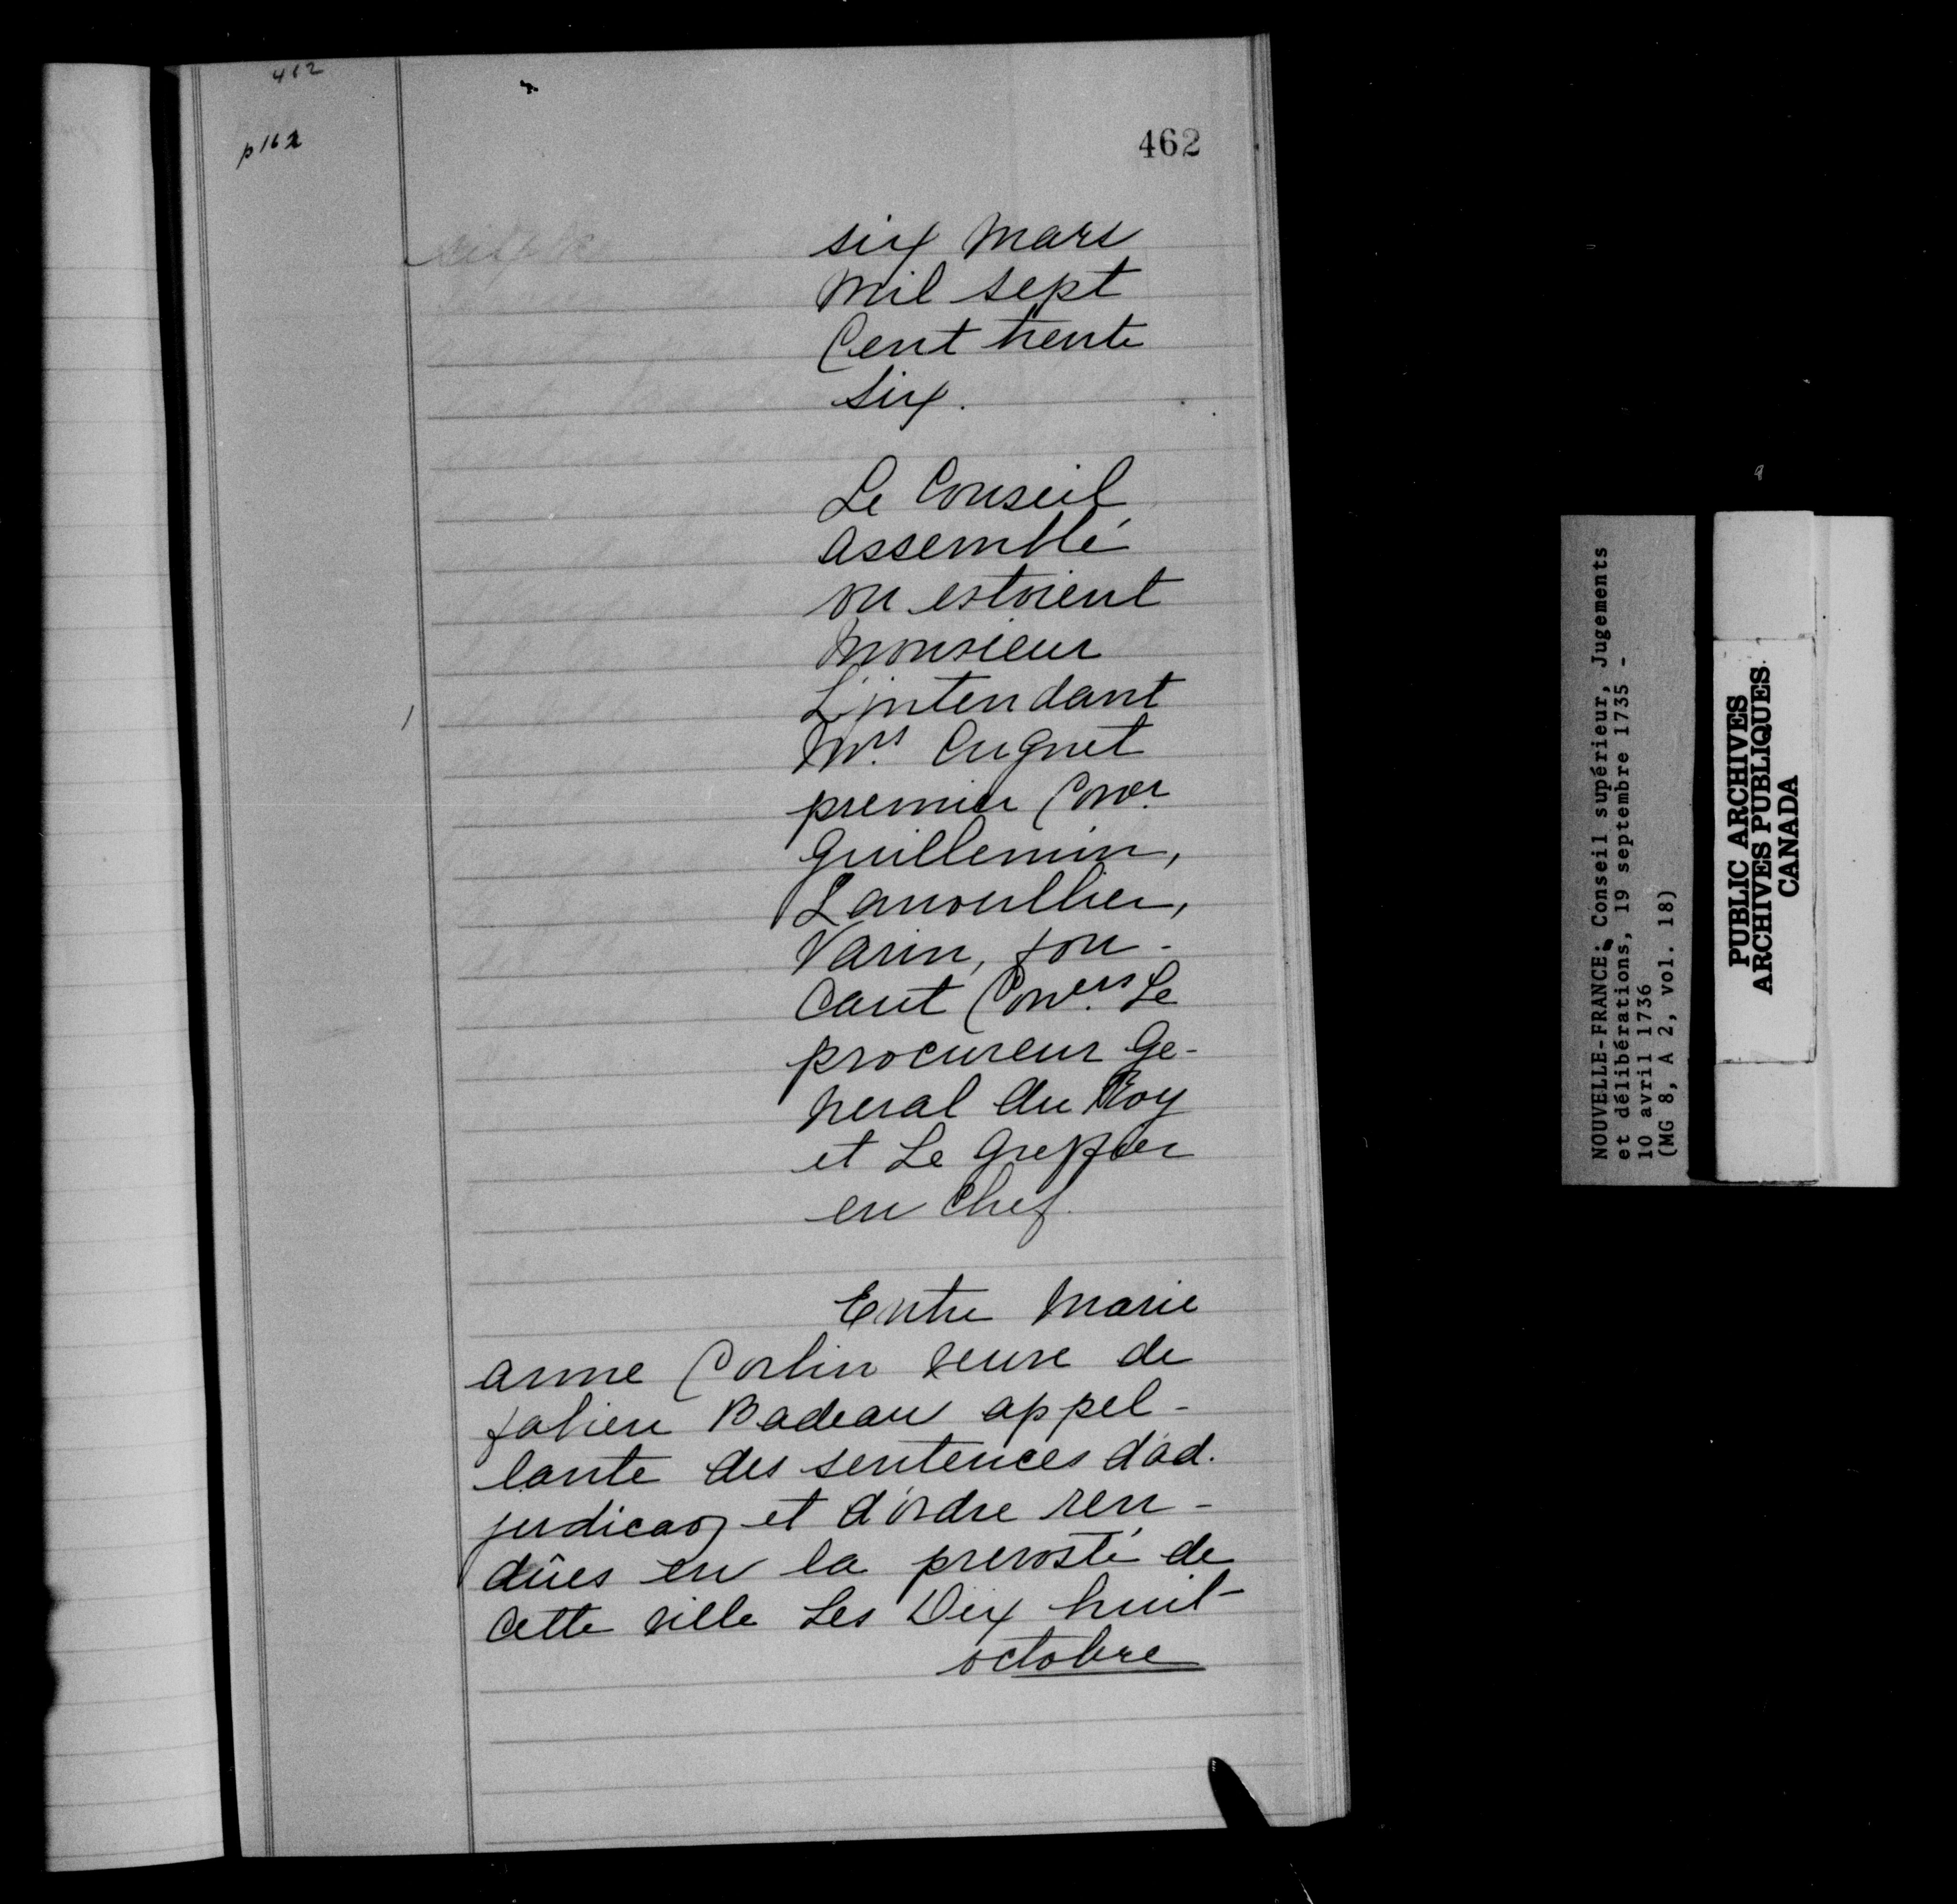 462
p 162
462
six Mars
Mil sept
Cent trente
six.
Le Conseil
assemblé
ou estoient
Monsieur
L'jntendant
Mrs. Cugnet
premier Coner.
Guillemin,
Lanoullier,
Varin, fou-
cault Coners. Le
procureur Ge-
neral du Roy
et Le Greffier
en Chef.
Entre Marie
anne Corbin veuve de
fabien Badeau appel-
lante des sentences d'ad.
judicaon et d'ordre ren-
dûes en la prevosté de
cette ville Les Dix huit
octobre
NOUVELLE-FRANCE: Conseil supérieur, Jugements
et délibérations, 19 septembre 1735 -
10 avril 1736
(MG 8, A 2, vol. 18)
PUBLIC ARCHIVES
ARCHIVES PUBLIQUES
CANADA